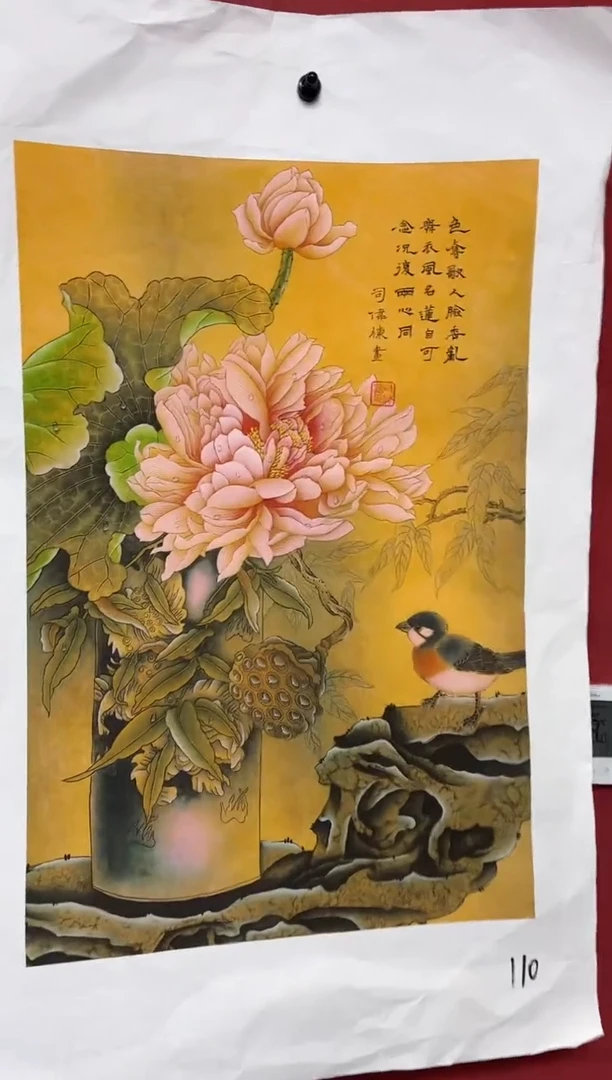 色奪歌人臉香亂
舞衣風名蓮自可
念況復兩心同
司偉畫
110